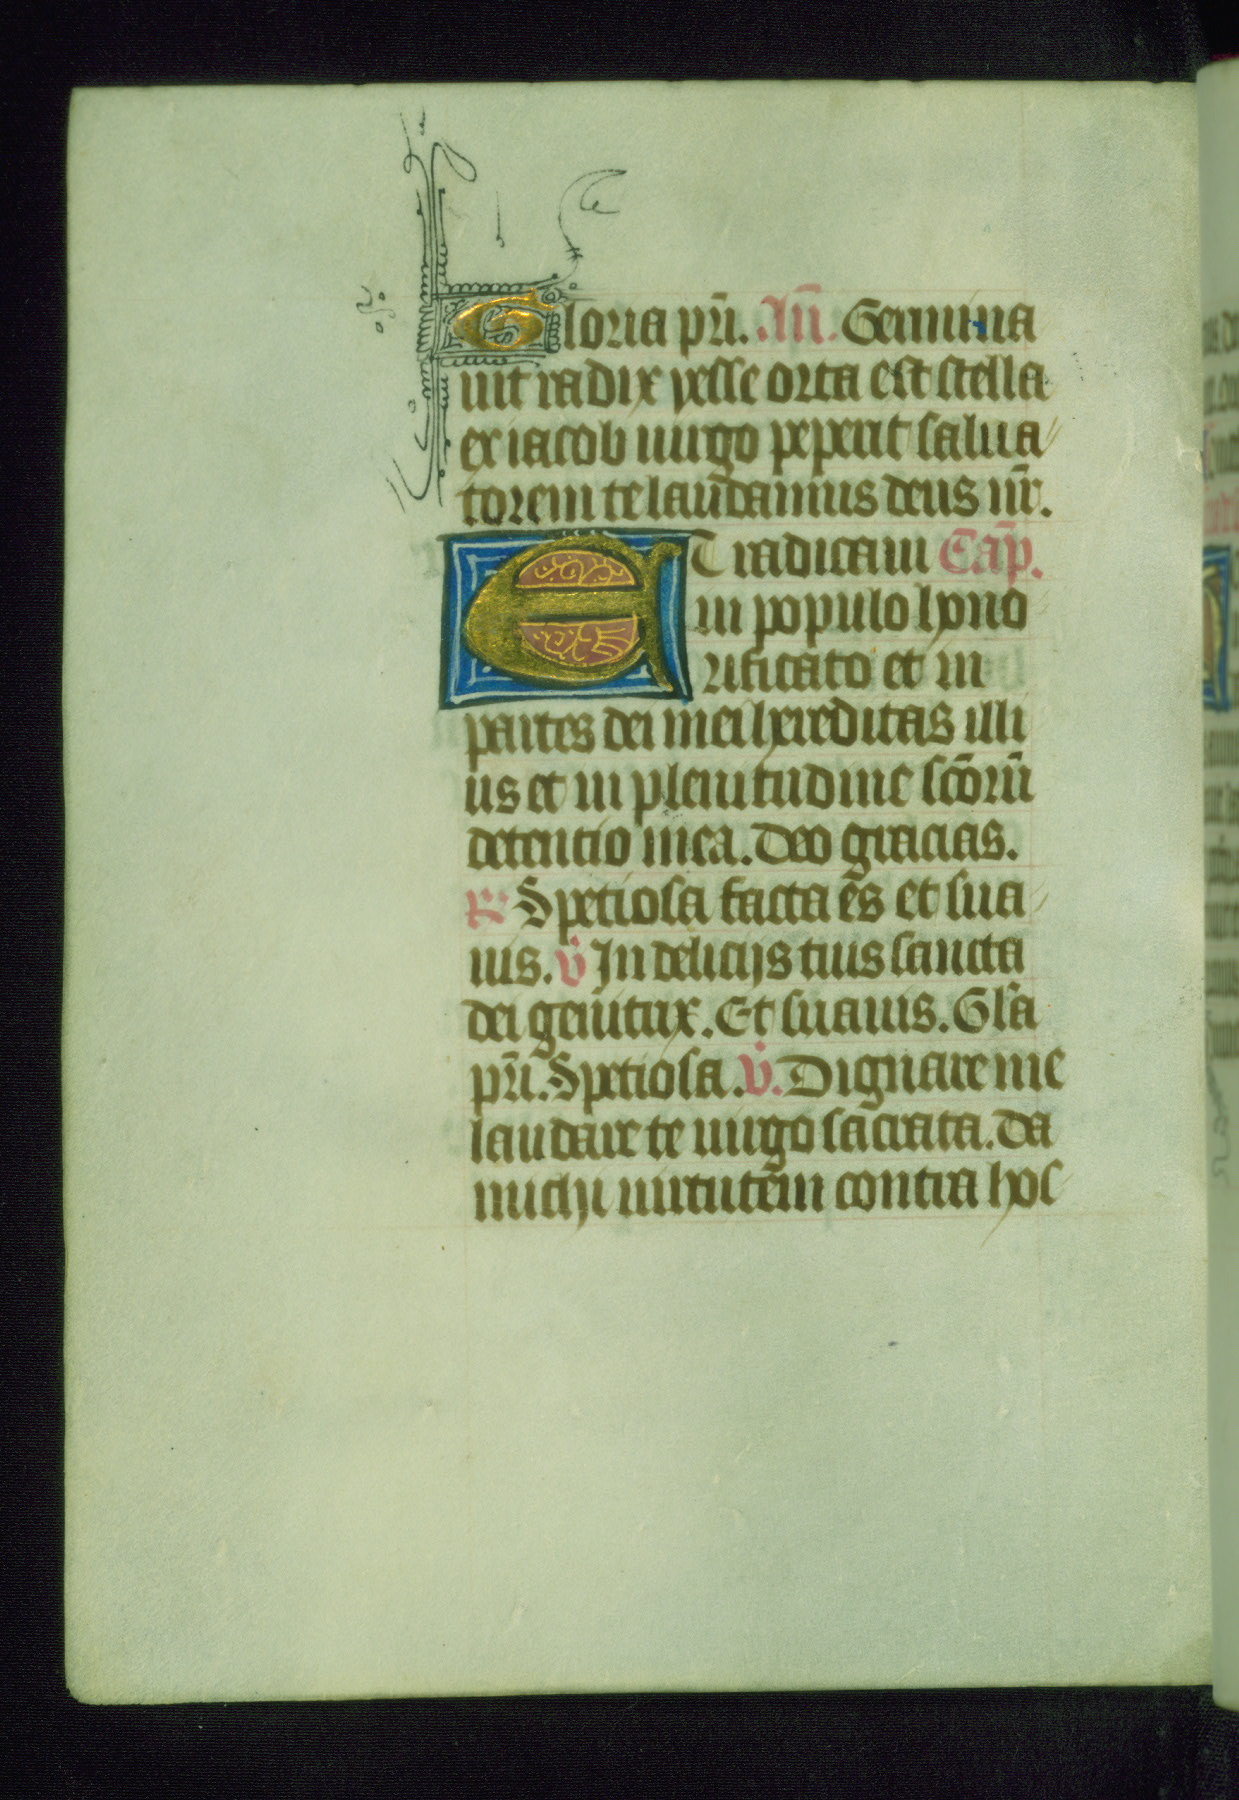 Gloria pr̄i. .An̄. Germina
uit radix yesse orta est stella
ex iacob uirgo peperit salua
torem te laudamus deus nr̄.
ET radicaui Cap̄.
in populo hono
rificato et in
partes dei mei hereditas illi
us et in plenitudine sc̄orū
detentio mea. Deo gracias.
R̷ Spetiosa facta es et sua
uis. V̇ In delicijs tuis sancta
dei genitrix. Et suauis. Gl̄a
pr̄i. Spetiosa. V̇. Dignare me
laudare te uirgo sacrata. Da
michi uirtutem contra hos